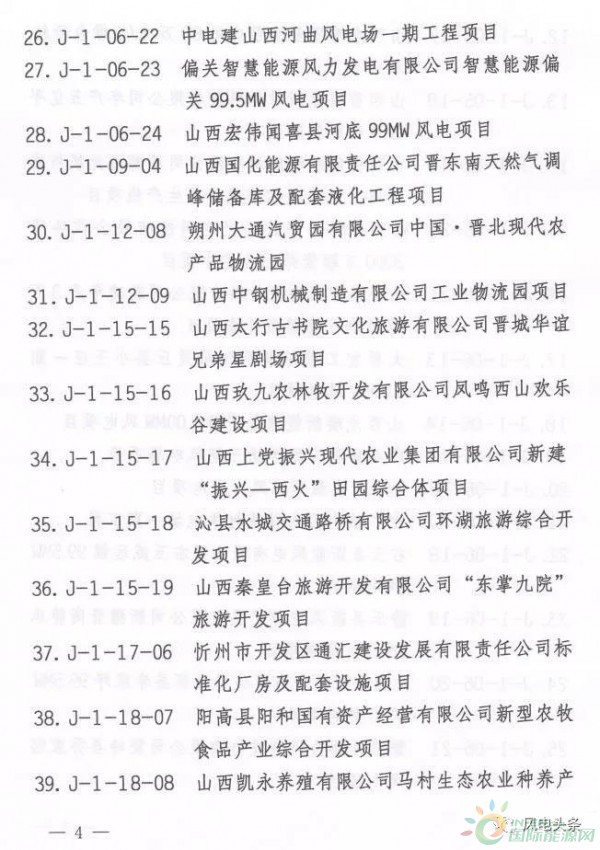 26. J-1-06-22 中电建山西河曲风电场一期工程项目
27. J-1-06-23 偏关智慧能源风力发电有限公司智慧能源偏
关99.5MW风电项目
28. J-1-06-24 山西宏伟闻喜县河底99MW风电项目
29. J-1-09-04 山西国化能源有限责任公司晋东南天然气调
峰储备库及配套液化工程项目
30. J-1-12-08 朔州大通汽贸园有限公司中国·晋北现代农
产品物流园
31. J-1-12-09 山西中钢机械制造有限公司工业物流园项目
32. J-1-15-15 山西太行山书院文化旅游有限公司晋城华谊
兄弟星剧场项目
33. J-1-15-16 山西玖九农林牧开发有限公司凤鸣西山欢乐
谷建设项目
34. J-1-15-17 山西上党振兴现代农业集团有限公司新建
“振兴—西火”田园综合体项目
35. J-1-15-18 沁县水城交通路桥有限公司环湖旅游综合开
发项目
36. J-1-15-19 山西秦皇台旅游开发有限公司“东掌九院”
旅游开发项目
37. J-1-17-06 忻州市开发区通汇建设发展有限责任公司标
准化厂房及配套设施项目
38. J-1-18-07 阳高县阳和国有资产经营有限公司新型农牧
食品产业综合开发项目
39. J-1-18-08 山西凯永养殖有限公司马村生态农业种养产
— 4 —
风电头条
国际能源网